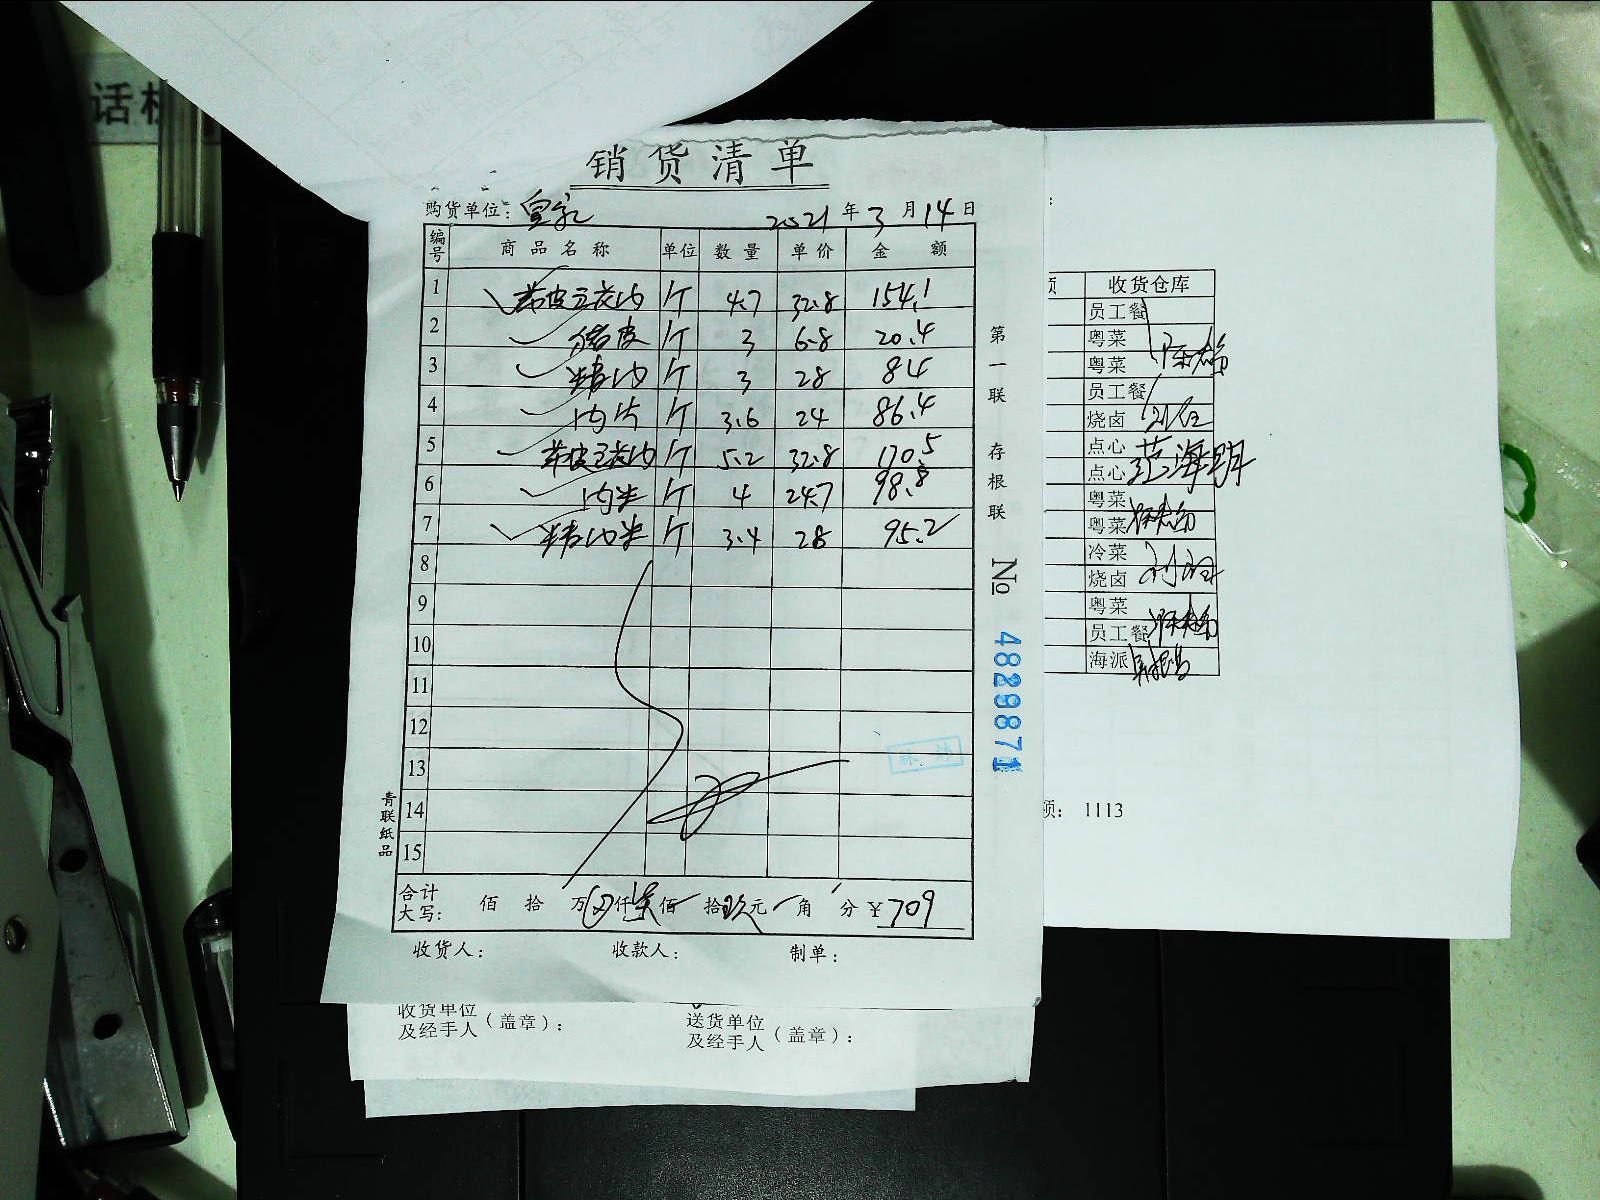 话机
销货清单
购货单位：皇家 2021年3月14日
编号 商品名称 单位 数量 单价 金额
1 带皮五花肉 斤 4.7 32.8 154.1
2 猪皮 斤 3 6.8 20.4
3 精肉 斤 3 28 84
4 肉片 斤 3.6 24 86.4
5 带皮五花肉 斤 5.2 32.8 170.5
6 肉米 斤 4 24.7 98.8
7 精肉米 斤 3.4 28 95.2
8
9
10
11
12
13
14
15
合计大写： 佰 拾 万 仟柒佰 拾玖元 角 分 ￥709
收货人： 收款人： 制单：
青联纸品
第一联 存根联 № 4829871
收货单位及经手人（盖章）： 送货单位及经手人（盖章）：
额 收货仓库
员工餐
粤菜
粤菜
员工餐
烧卤
点心
点心 范海明
粤菜
粤菜
冷菜
烧卤
粤菜
员工餐
海派
额： 1113